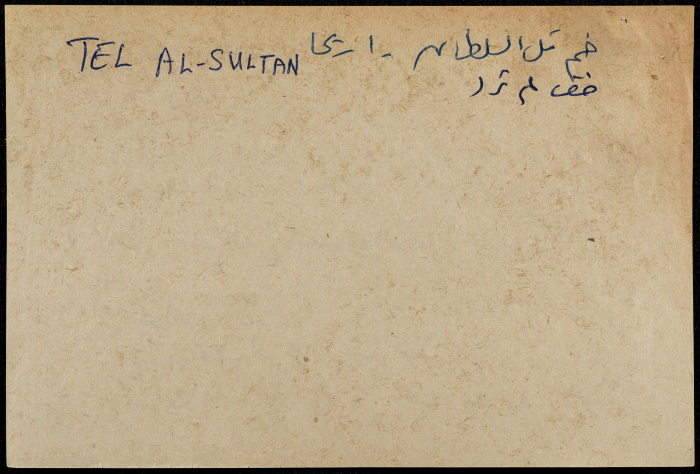 TEL AL-SULTAN تل السلطان - اريحا
لم ترد